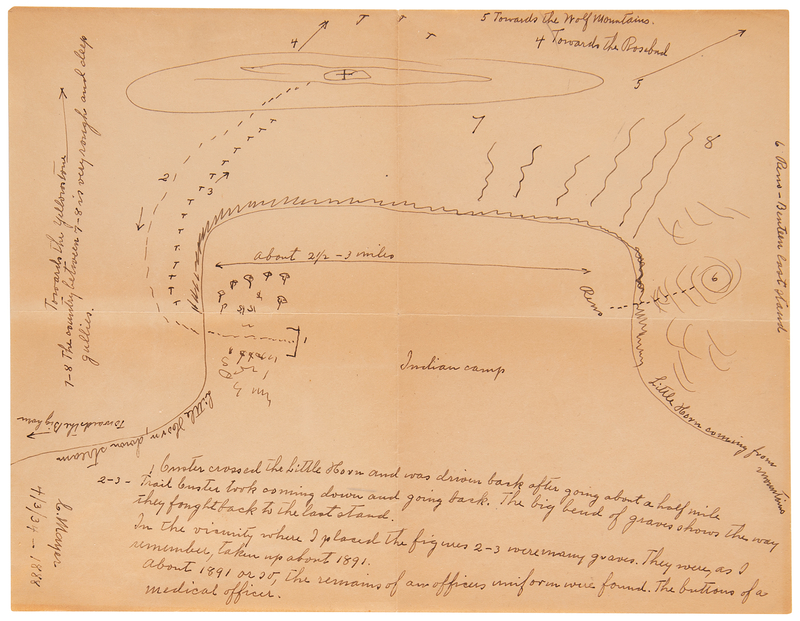 5 Towards the Wolf Mountains.
4 Towards the Rosebud
4
5
7
8
2
3
6
1
6 Reno-Benteen last stand
Towards the Yellowstone
7-8 The country between 7-8 is very rough and deep
gullies.
About 2 1/2 - 3 miles
Reno
Indian camp
Little Horn down stream
Towards the Big horn
Little Horn coming from
mountains
1 Custer crossed the Little Horn and was driven back after going about a half mile
2-3 - Trail Custer took coming down and going back. The big bend of graves shows the way
they fought back to the last stand.
In the vicinity where I placed the figures 2-3 were many graves. They were, as I
remember, taken up about 1891.
About 1891 or so, the remains of an officers uniform were found. The buttons of a
medical officer.